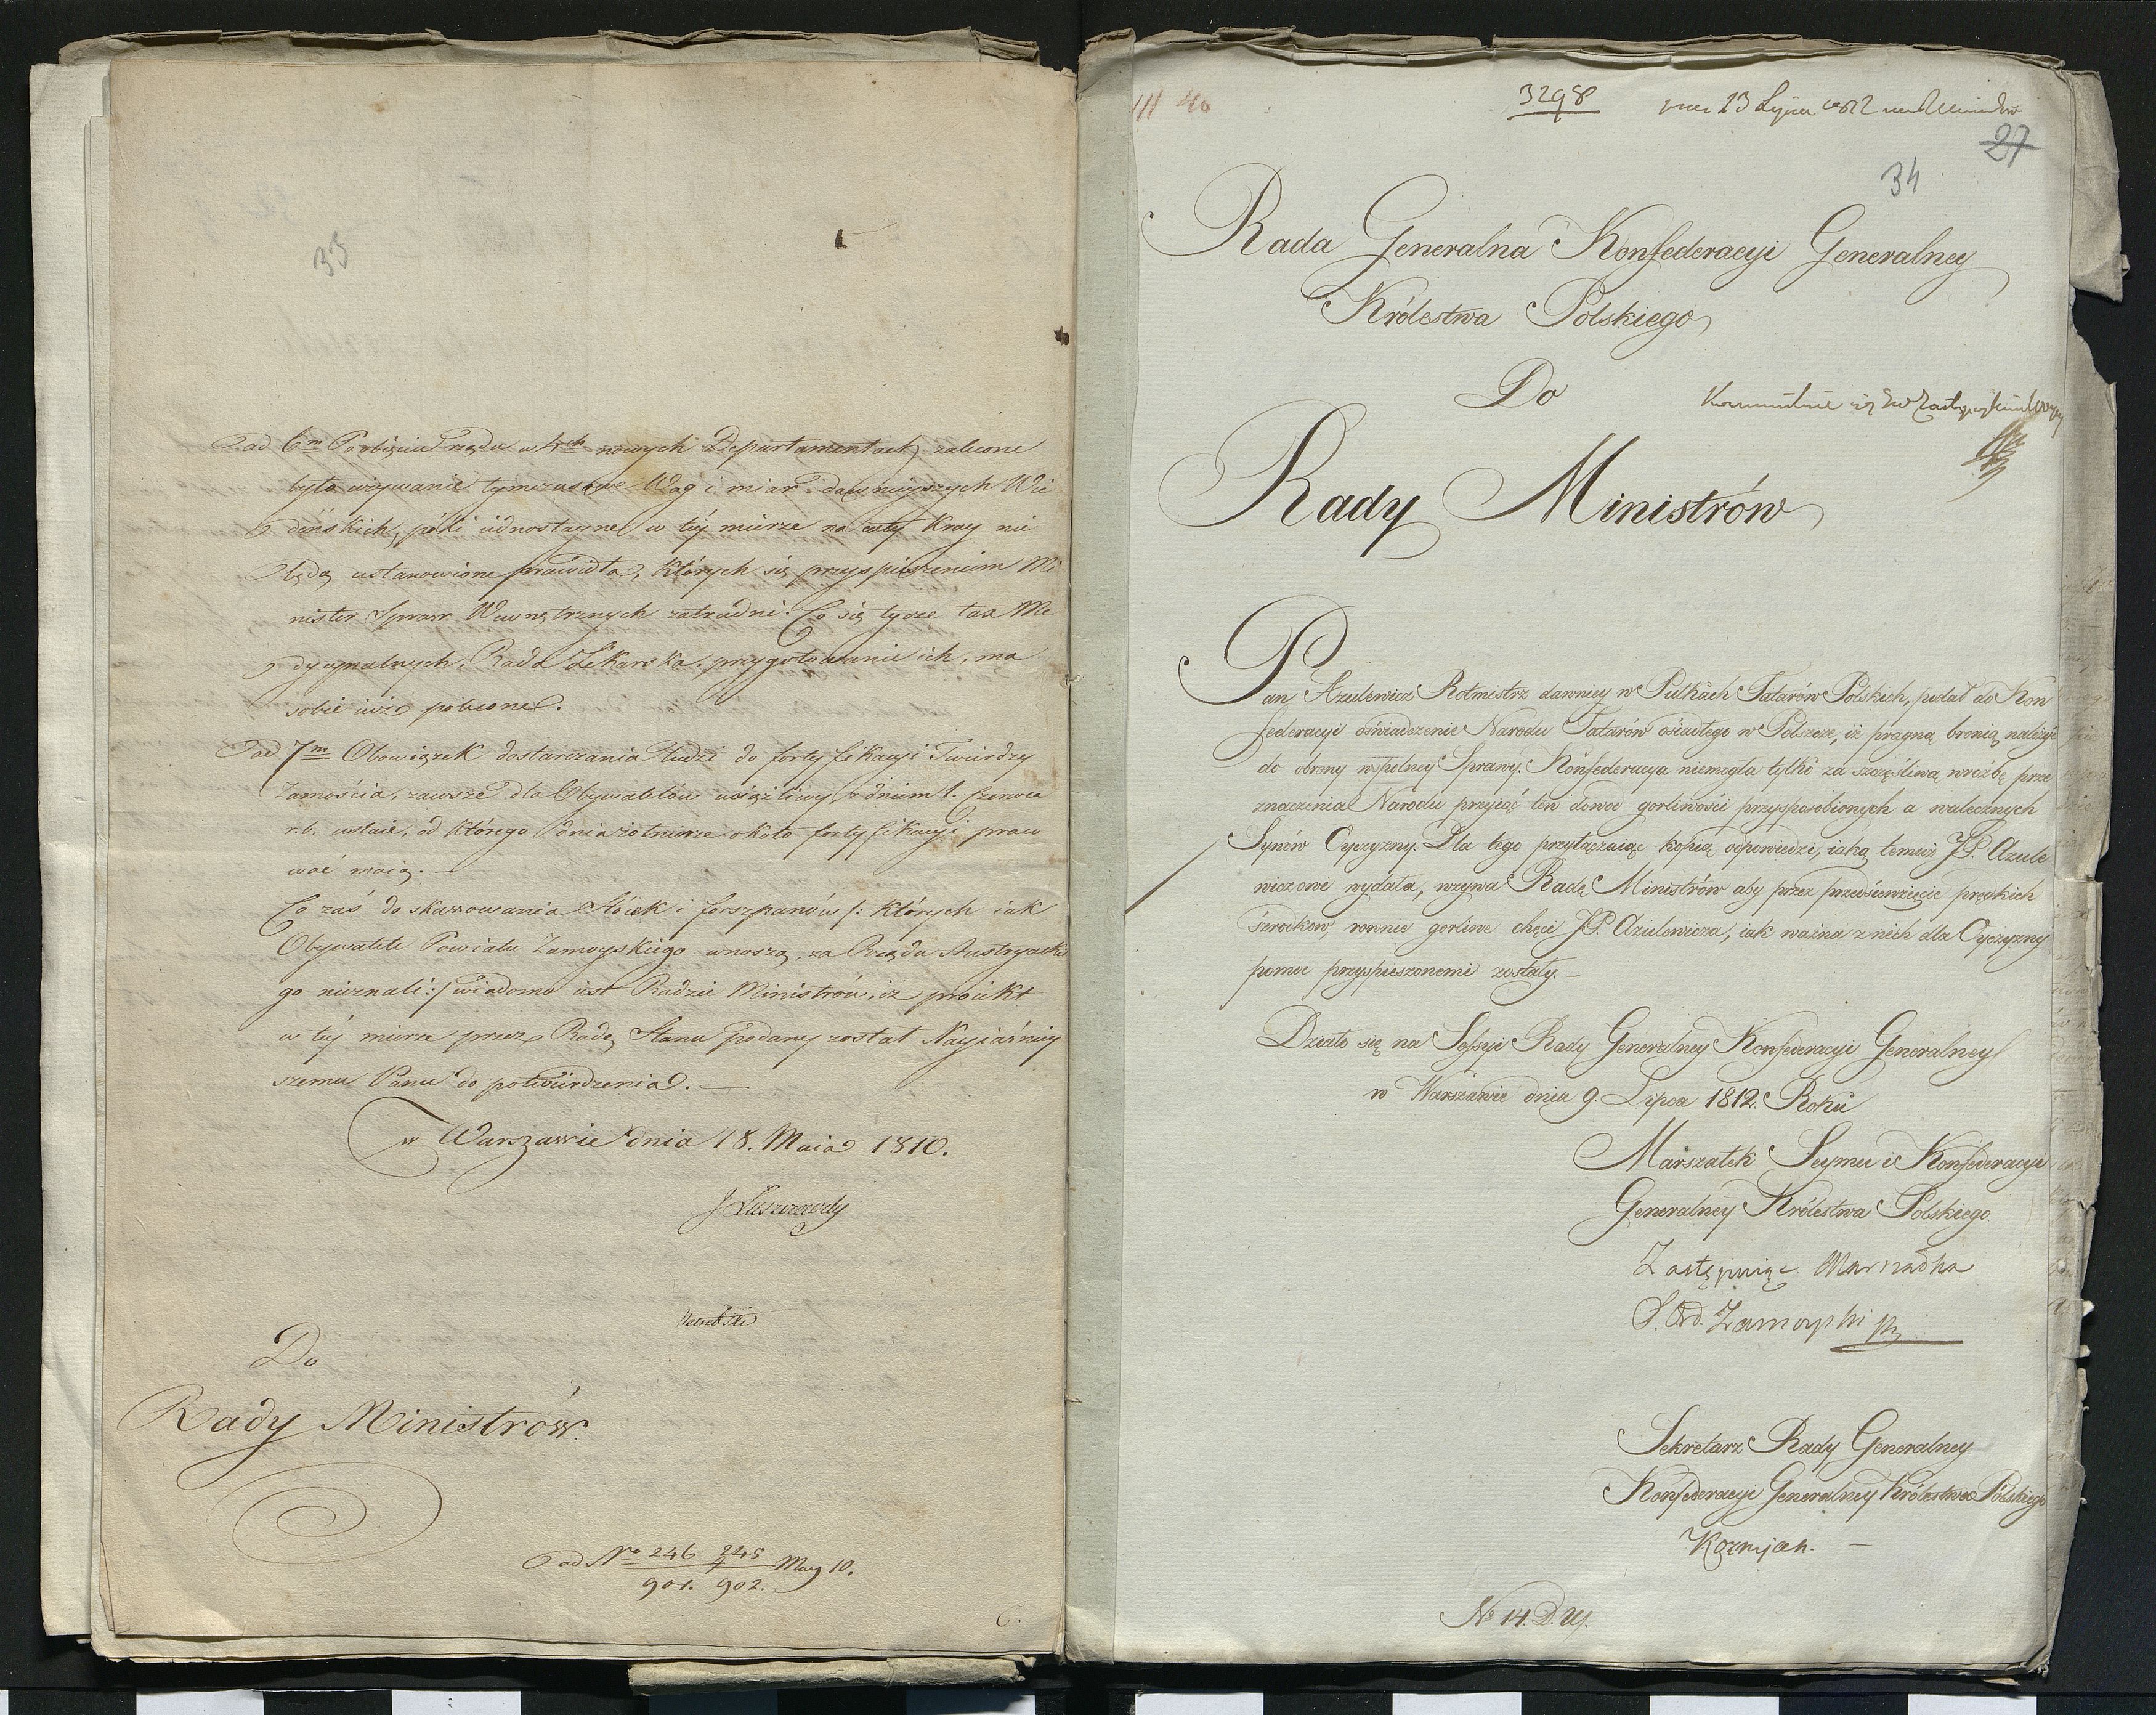 33
ad 6m Po obięciu rządu w 4ch nowych Departamentach zalecone
było używanie tymczasowe Wag i miar dawnieyszych Wie
deńskich, póki iednostayne w tey mierze na cały Kray nie
będą ustanowione prawidła, których się przyspieszeniem Mi
nister Spraw Wewnętrznych zatrudni. Co się tycze tax Me
dycynalnych, Rada Lekarska, przygotowanie ich, ma
sobie iuż polecone.
ad 7m Obowiązek dostarczania ludzi do fortyfikacyi Twierdzy
Zamościa, zawsze dla Obywatelów uciążliwy, z dniem 1. Czerwca
r. b. ustaie, od którego dnia żołnierze około fortyfikacyi praco
wać maią. —
Co zaś do skassowania Stóiek i forszpanów /: których iak
Obywatele Powiatu Zamoyskiego wnoszą, za Rządu Austryackie
go nieznali :/ wiadomo iest Radzie Ministrów, iż proiekt
w tey mierze przez Radę Stanu podany został Nayiaśniey
szemu Panu do potwierdzenia. —
w Warszawie dnia 18. Maia 1810.
J Łuszczewsky
Do
Rady Ministrów.
ad No 246 245 May 10.
901. 902.
C.
3298
13 Lipca 1812
27
34
Rada Generalna Konfederacyi Generalney
Królestwa Polskiego
Do
Rady Ministrów
Pan Azulewicz Rotmistrz dawniey w Pułkach Tatarów Polskich, podał do Kon
federacyi oświadczenie Narodu Tatarów osiadłego w Polszcze, iż pragną bronią należeć
do obrony wspolney Sprawy. Konfederacya niemogła tylko za szczęśliwą wróżbę prze
znaczenia Narodu przyiąć ten dowod gorliwości przysposobionych a walecznych
Synów Oyczyzny. Dla tego przyłączaiąc kopią odpowiedzi, iaką temuż JP. Azule
wiczowi wydała, wzywa Radę Ministrów aby przez przedsiewzięcie prędkich
srodkow, rownie gorliwe chęci JP. Azulewicza, iak ważna z nich dla Oyczyzny
pomoc przyspieszonemi zostały. —
Działo się na Sessyi Rady Generalney Konfederacyi Generalney
w Warszawie dnia 9. Lipca 1812. Roku
Marszałek Seymu i Konfederacyi
Generalney Królestwa Polskiego.
Zastępuiąc Marszałka
S. Ord. Zamoyski
Sekretarz Rady Generalney
Konfederacyi Generalney Królestwa Polskiego
Kozmian. —
No 14. D. W.